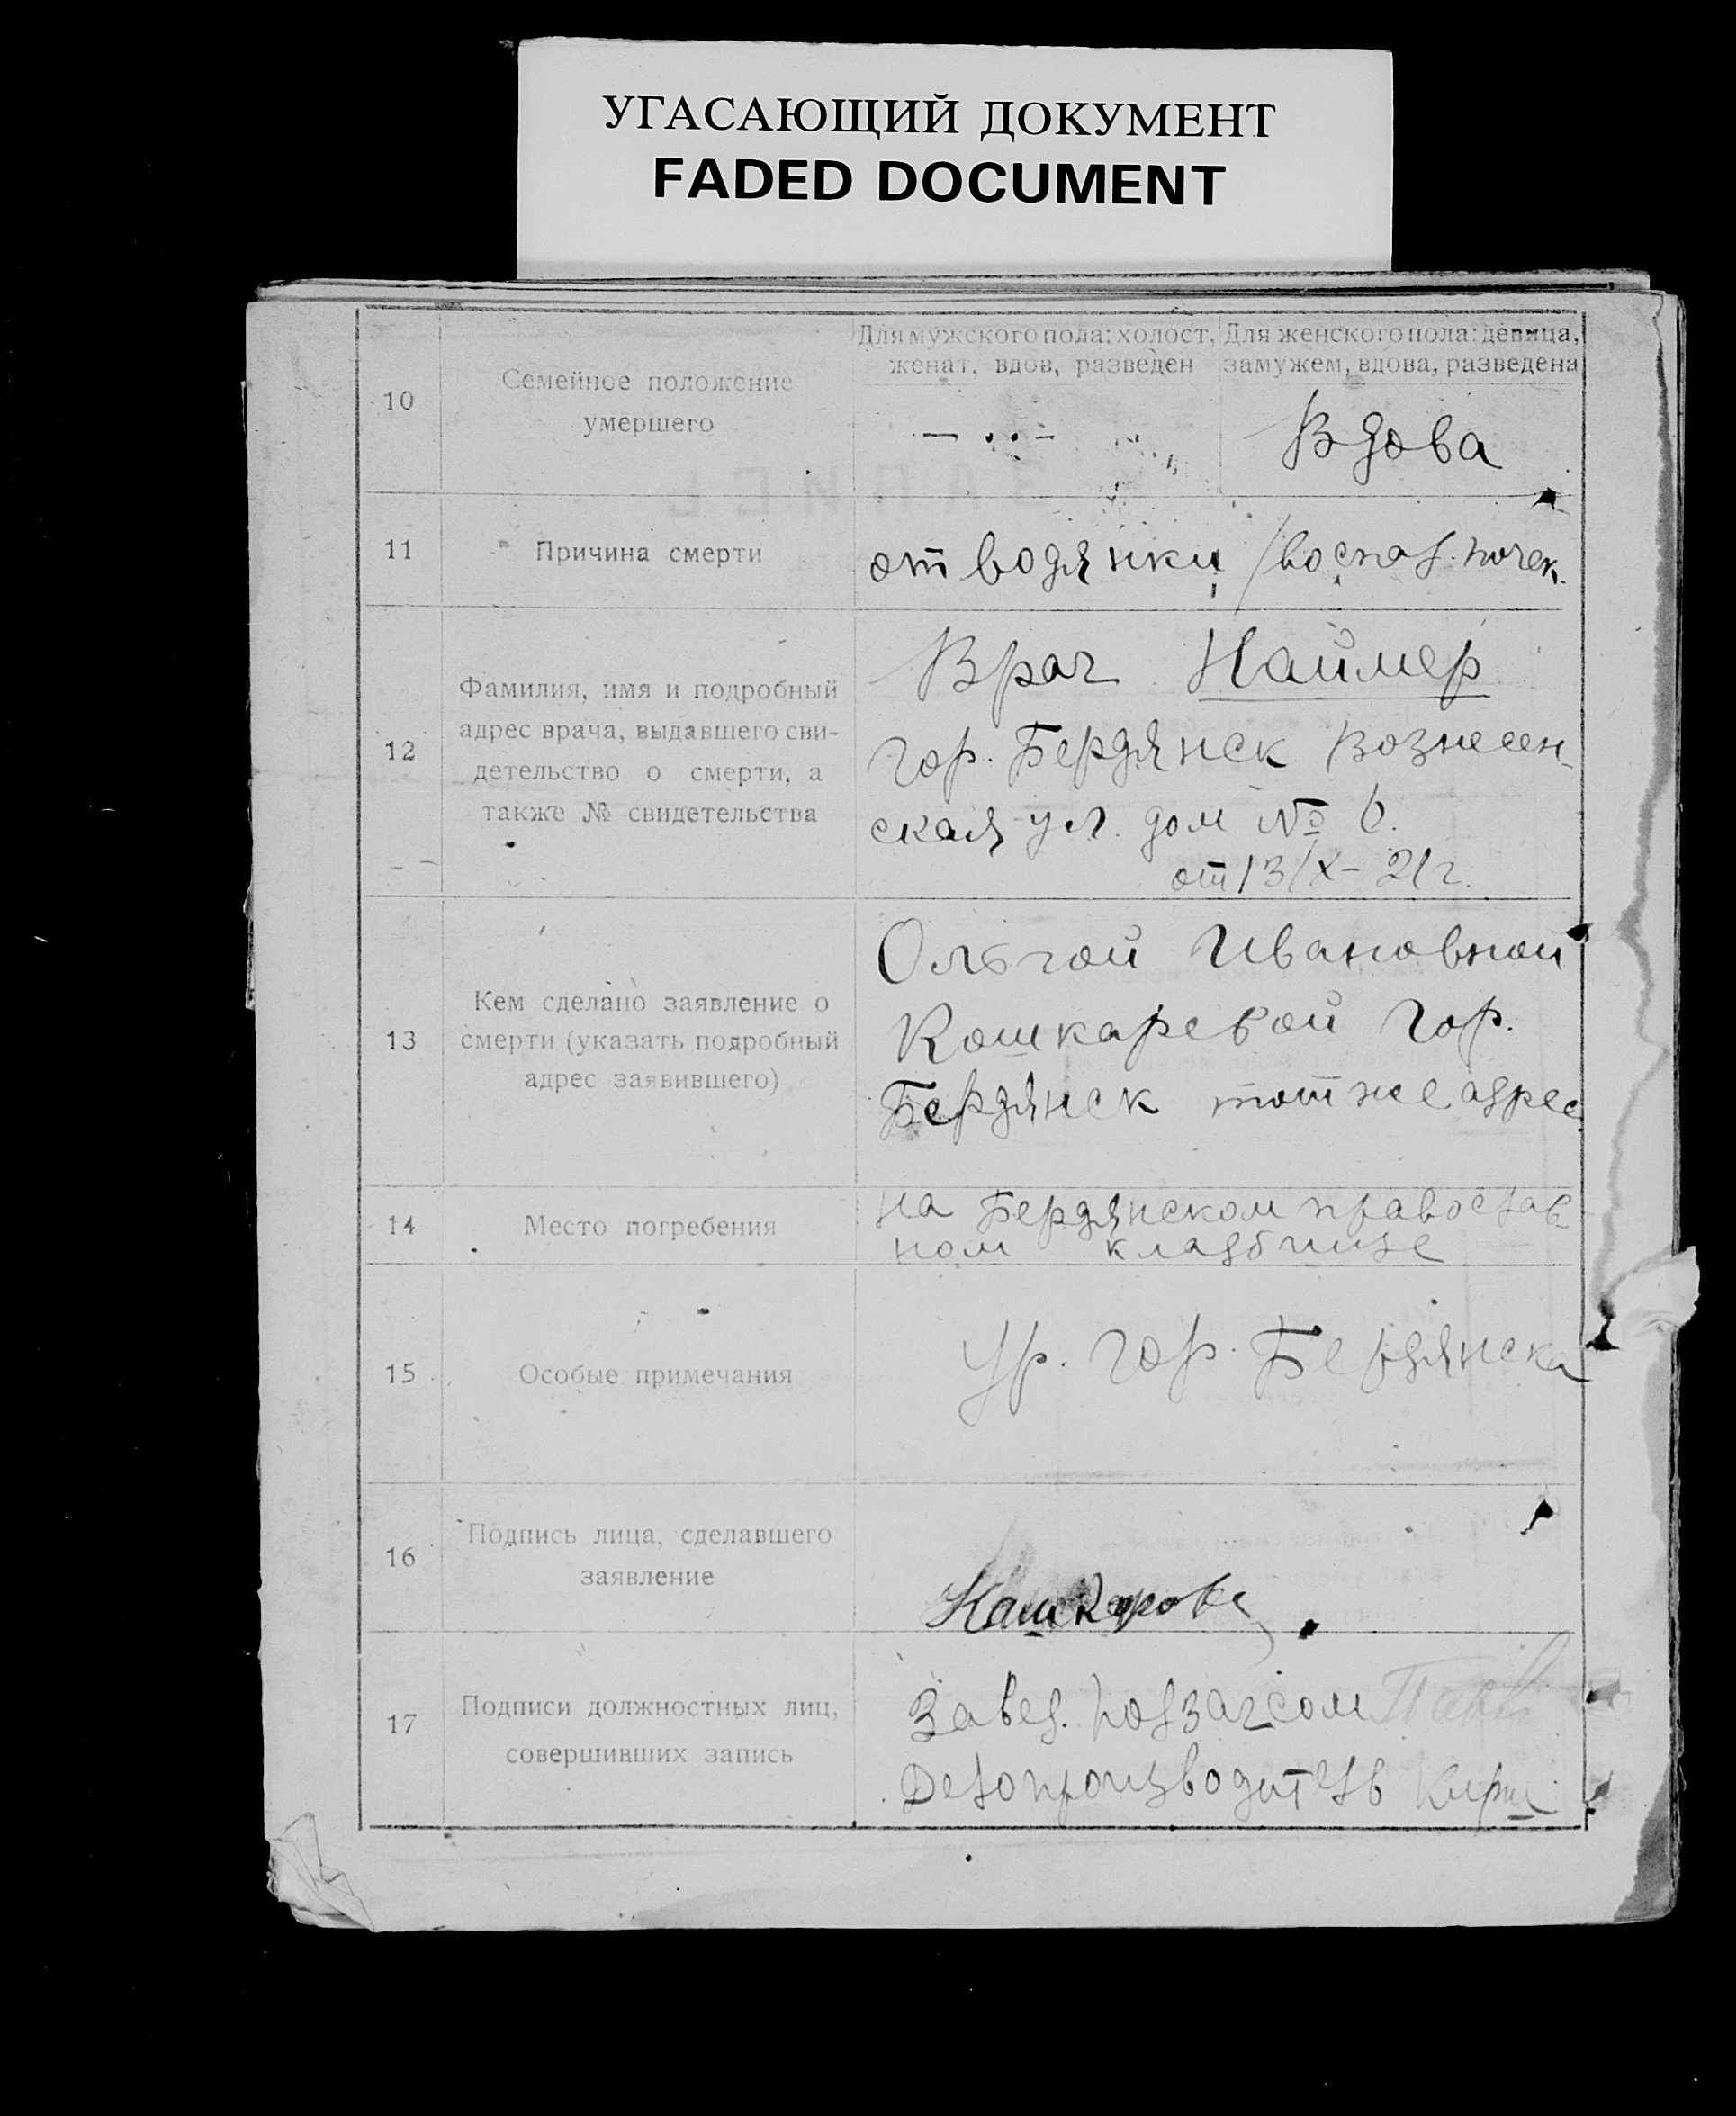 УГАСАЮЩИЙ ДОКУМЕНТ
FADED DOCUMENT
Для мужского пола: холост,
женат, вдов, разведен
Для женского пола: девица,
замужем, вдова, разведена
10
Семейное положение
умершего
— . . –
Вдова
11
Причина смерти
от водянки /воспал. почек.
12
Фамилия, имя и подробный
адрес врача, выдавшего сви-
детельство о смерти, а
также № свидетельства
Врач Наймер
гор. Бердянск Вознесен-
ская ул. дом № 6.
от 13/X – 21 г.
13
Кем сделано заявление о
смерти (указать подробный
адрес заявившего)
Ольгой Ивановной
Кошкаревой гор.
Бердянск тот же адрес
14
Место погребения
на Бердянском православ-
ном кладбище
15
Особые примечания
Ур. гор. Бердянска
16
Подпись лица, сделавшего
заявление
Кашкарова
17
Подписи должностных лиц,
совершивших запись
Завед. подзагсом
Делопроизводитель